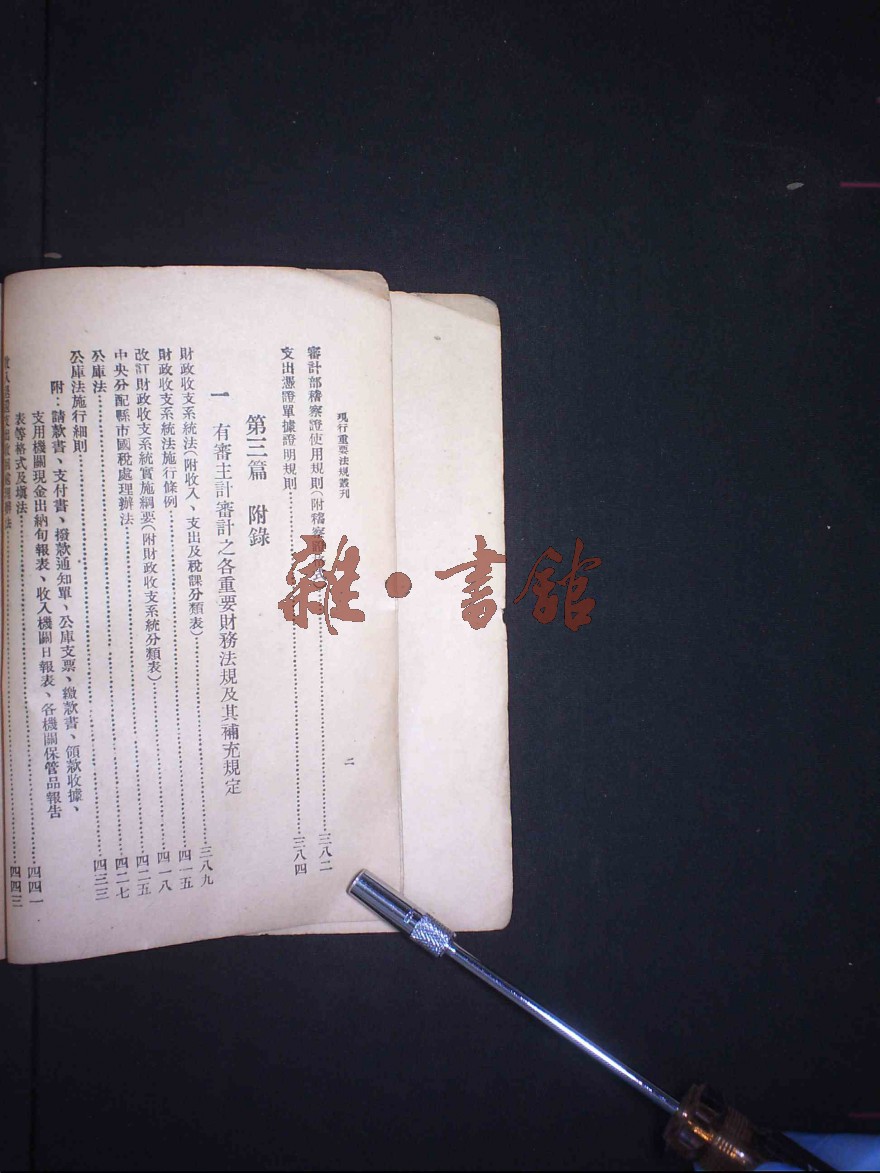 現行重要法規叢刊
二
審計部稽察證使用規則(附稽察證 三八二
支出憑證單據證明規則 三八四
第三篇 附錄
一 有審主計審計之各重要財務法規及其補充規定
財政收支系統法(附收入、支出及稅課分類表) 三八九
財政收支系統法施行條例 四一五
改訂財政收支系統實施綱要(附財政收支系統分類表) 四一八
中央分配縣市國稅處理辦法 四二五
公庫法 四二七
公庫法施行細則 四三三
附:請款書、支付書、撥款通知單、公庫支票、繳款書、領款收據、
支用機關現金出納旬報表、收入機關日報表、各機關保管品報告
表等格式及填法 四四一
四四三
雜·書館